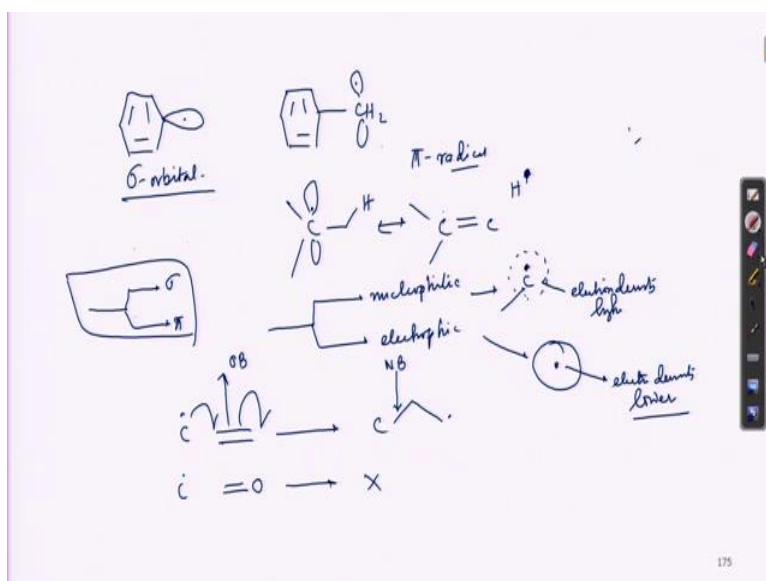 CH2
σ-orbital.
π-radical
H•
C H ↔ C = C
σ
π
nucleophilic → C electron density high
electrophilic
electron density lower
σB
NB
Ċ = → C
Ċ =O → X
175